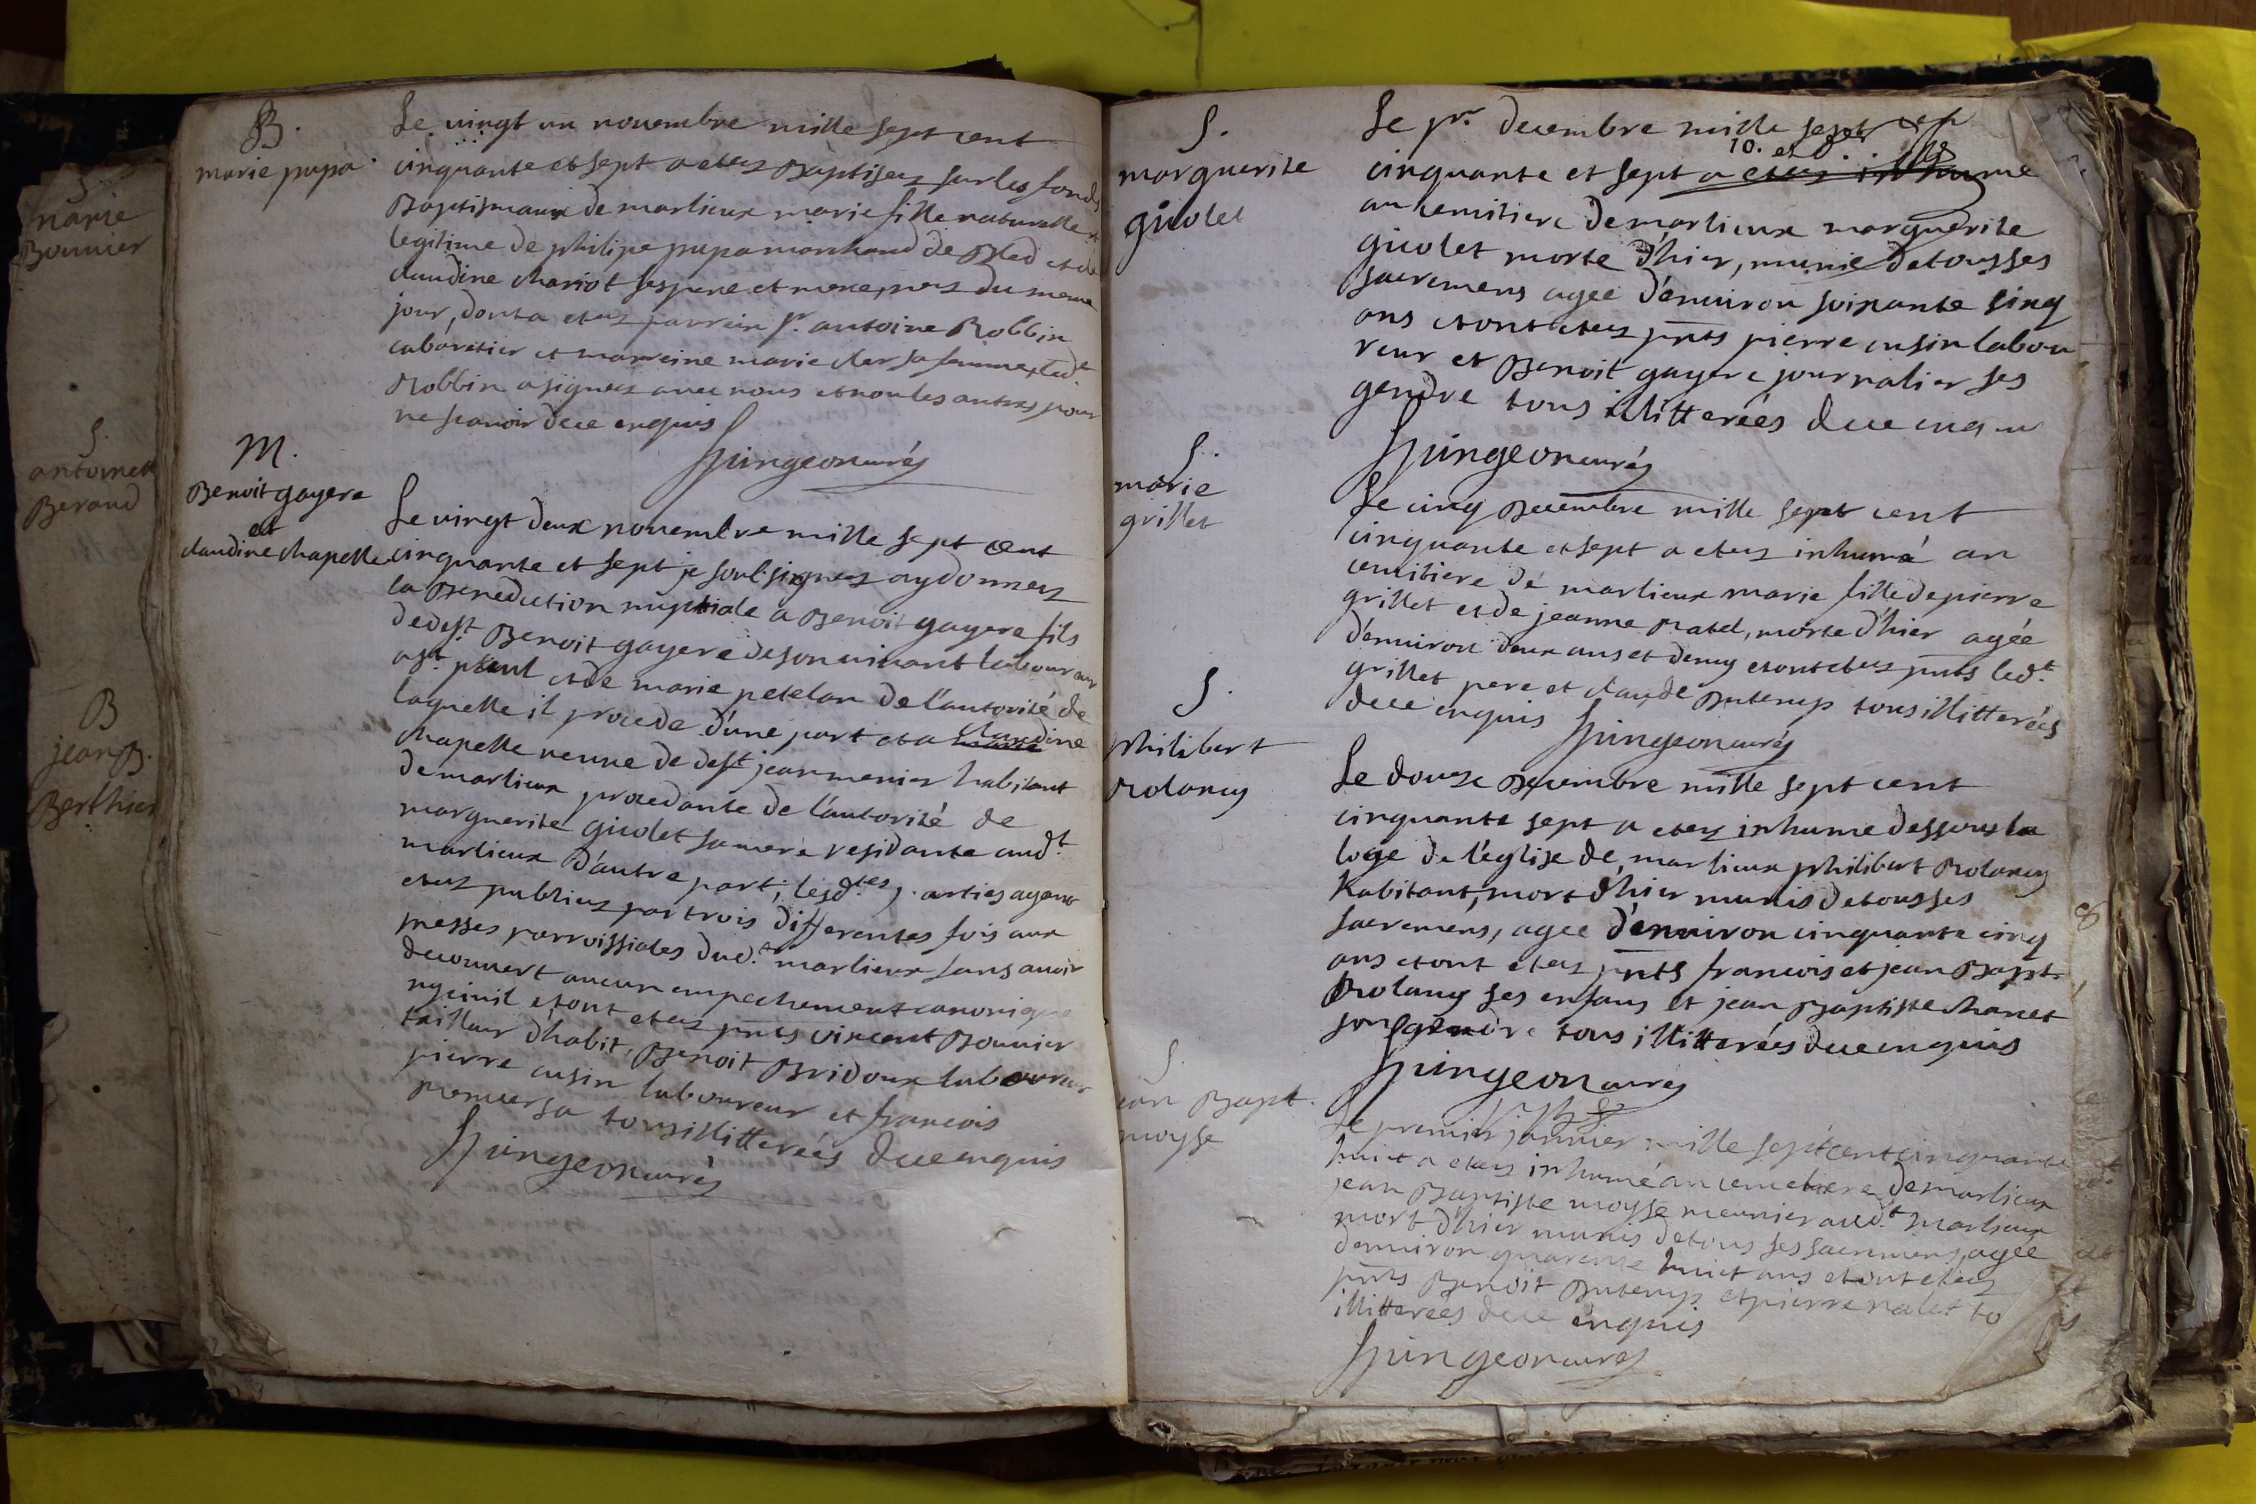 S.
marie
Bonnier
S.
antoinet
Beraud
B
jean B.
Berthier
B.
marie pupa
Le vingt un novembre mille sept cent
cinquante et sept a etez Baptisez sur les fonds
Baptismaux de marlieux marie fille naturelle et
legitime de philipe pupa marchand de Bled et de
claudine chariot ses pere et mere, nez du meme
jour, dont a etez parrein sr. antoine Robbin
cabaretier et marreine marie cler sa femme, led.
Robbin a signez avec nous et non les autres pour
ne scavoir de ce enquis
Spingeon curéz
M.
Benoit gayere
et
claudine chapelle
Le vingt deux novembre mille sept cent
cinquante et sept je soubsignez ay donnez
la Benediction nuptiale a Benoit gayere fils
de deft Benoit gayere de son vivant laboureur
a st. paul et de marie petelan de l'autorité de
laquelle il procede d'une part et a claudine
chapelle veuve de deft jean menier habitant
de marlieux procedante de l'autorité de
marguerite givolet sa mere residante aud.t
marlieux d'autre part; lesd.tes parties ayant
etez publiez par trois differentes fois aux
messes parroissiales dud.t marlieux sans avoir
decouvert aucun empechement canonique
ny civil et ont etez pnts vincent Bonnier
tailleur d'habit, Benoit Bridoux laboureur
pierre cusin laboureur et francois
tous illitterées de ce enquis
Spingeon curéz
S.
marguerite
givolet
Le pr. decembre mille sept cen
10. et
cinquante et sept a etez inhume
au cemitiere de marlieux marguerite
givolet morte d'hier, munie de tous ses
sacremens agée d'environ soixante cinq
ans et ont etez pnts pierre cusin labou
reur et Benoit gayere journalier ses
gendre tous illitterées de ce enquis
Spingeon curéz
S.
marie
grillet
Le cinq Decembre mille sept cent
cinquante et sept a etez inhumá au
cemitiere de marlieux marie fille de pierre
grillet et de jeanne Ratel, morte d'hier agée
d'environ deux ans et demy et ont etez pnts led.t
grillet pere et claude Dutemps tous illitterées
de ce enquis Spingeon curéz
S.
philibert
Rolancy
Le douze Decembre mille sept cent
cinquante sept a etez inhume dessous la
loge de l'église de marlieux philibert Rolancy
habitant, mort d'hier munis de tous ses
sacremens, agée d'environ cinquante cinq
ans et ont etez pnts francois et jean Bapt.
Rolancy ses enfans et jean Baptiste chanet
son gendre tous illitterées de ce enquis
Spingeon curéz
S.
jean Bapt.
moyse
Le premier janvier mille sept cent cinquante
huict a etez inhumé au cemetiere de marlieux
jean Baptiste moyse meunier aud.t marlieux
mort d'hier munis de tous ses sacremens, agée
d'environ quarente huict ans et ont etez
pnts Benoit Dutemps et pierre ralet to
illitterées de ce enquis
Spingeon curéz